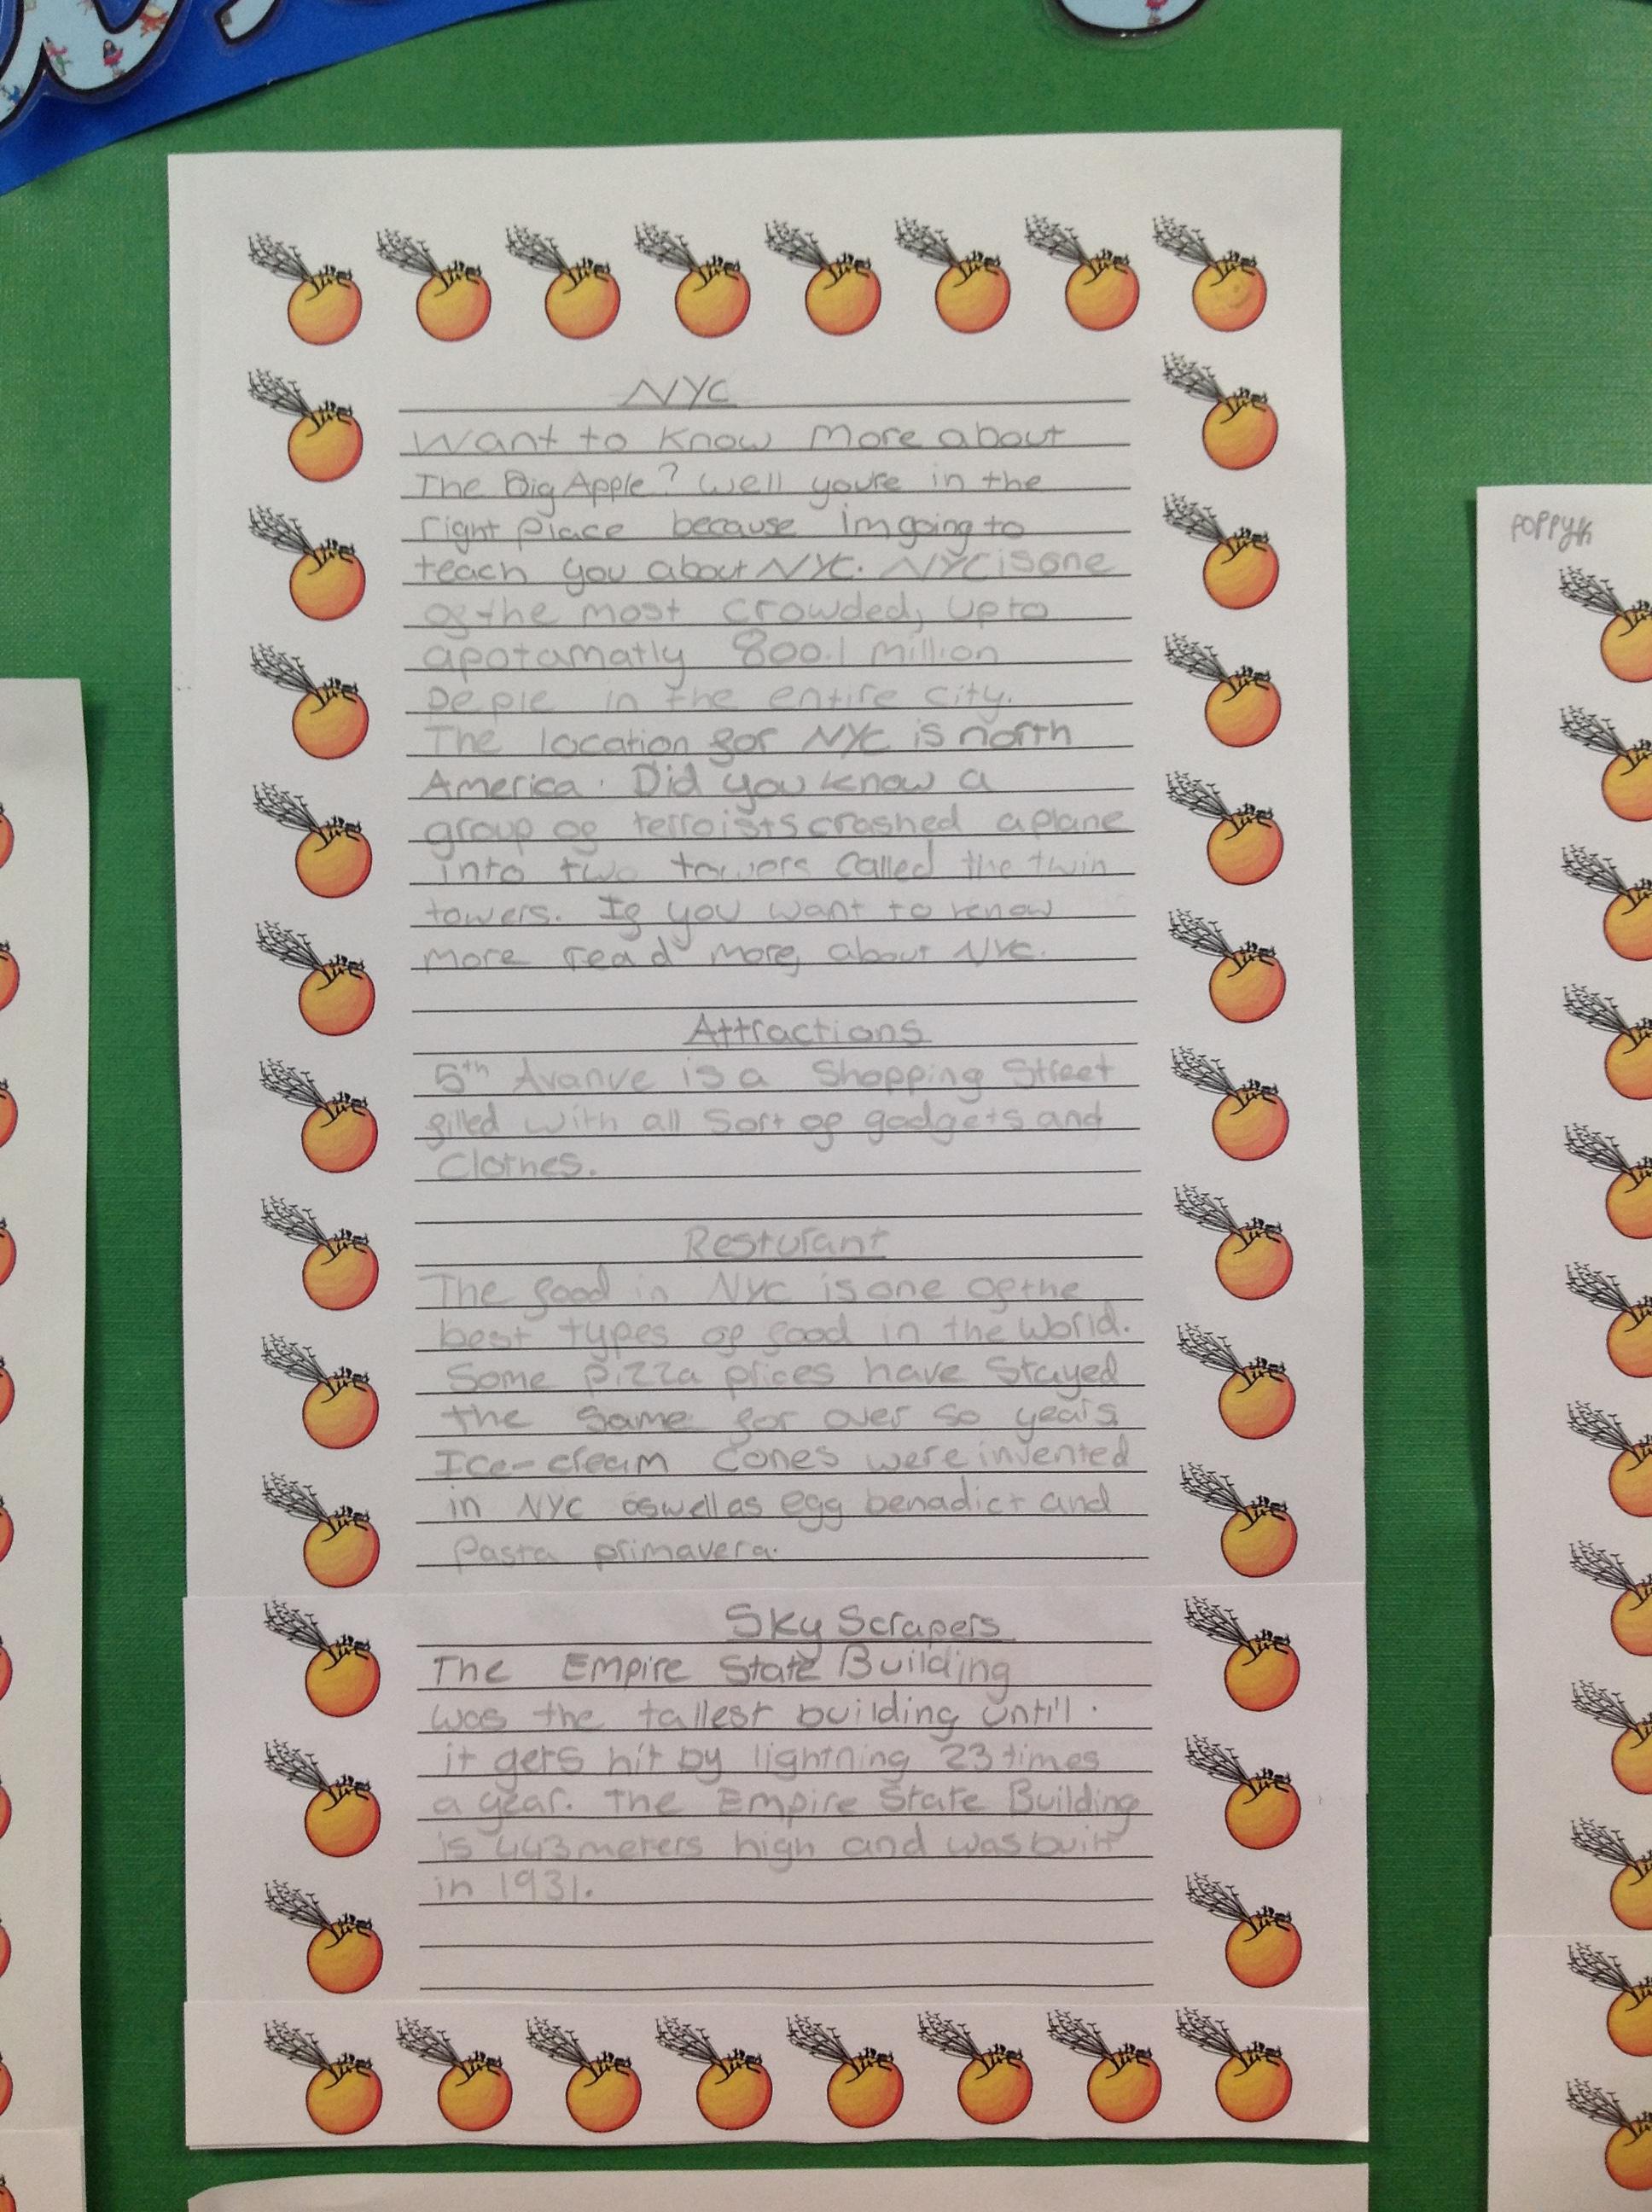 NYC
Want to know more about
The Big Apple? Well you're in the
right place because im going to
teach you about NYC. NYC is one
of the most crowded, up to
apotamatly 800.1 million
people in the entire city.
The location for NYC is north
America. Did you know a
group of terroists crashed a plane
into two towers called the twin
towers. If you want to know
more read more, about NYC.
Attractions
5th Avanve is a Shopping Street
filled with all sort of gadgets and
Clothes.
Resturant
The food in NYC is one of the
best types of food in the World.
Some pizza prices have Stayed
the same for over 50 years
Ice-cream Cones were invented
in NYC aswell as egg benadict and
Pasta primavera.
Sky Scrapers
The Empire State Building
was the tallest building until.
it gets hit by lightning 23 times
a year. The Empire State Building
is 443 meters high and was built
in 1931.